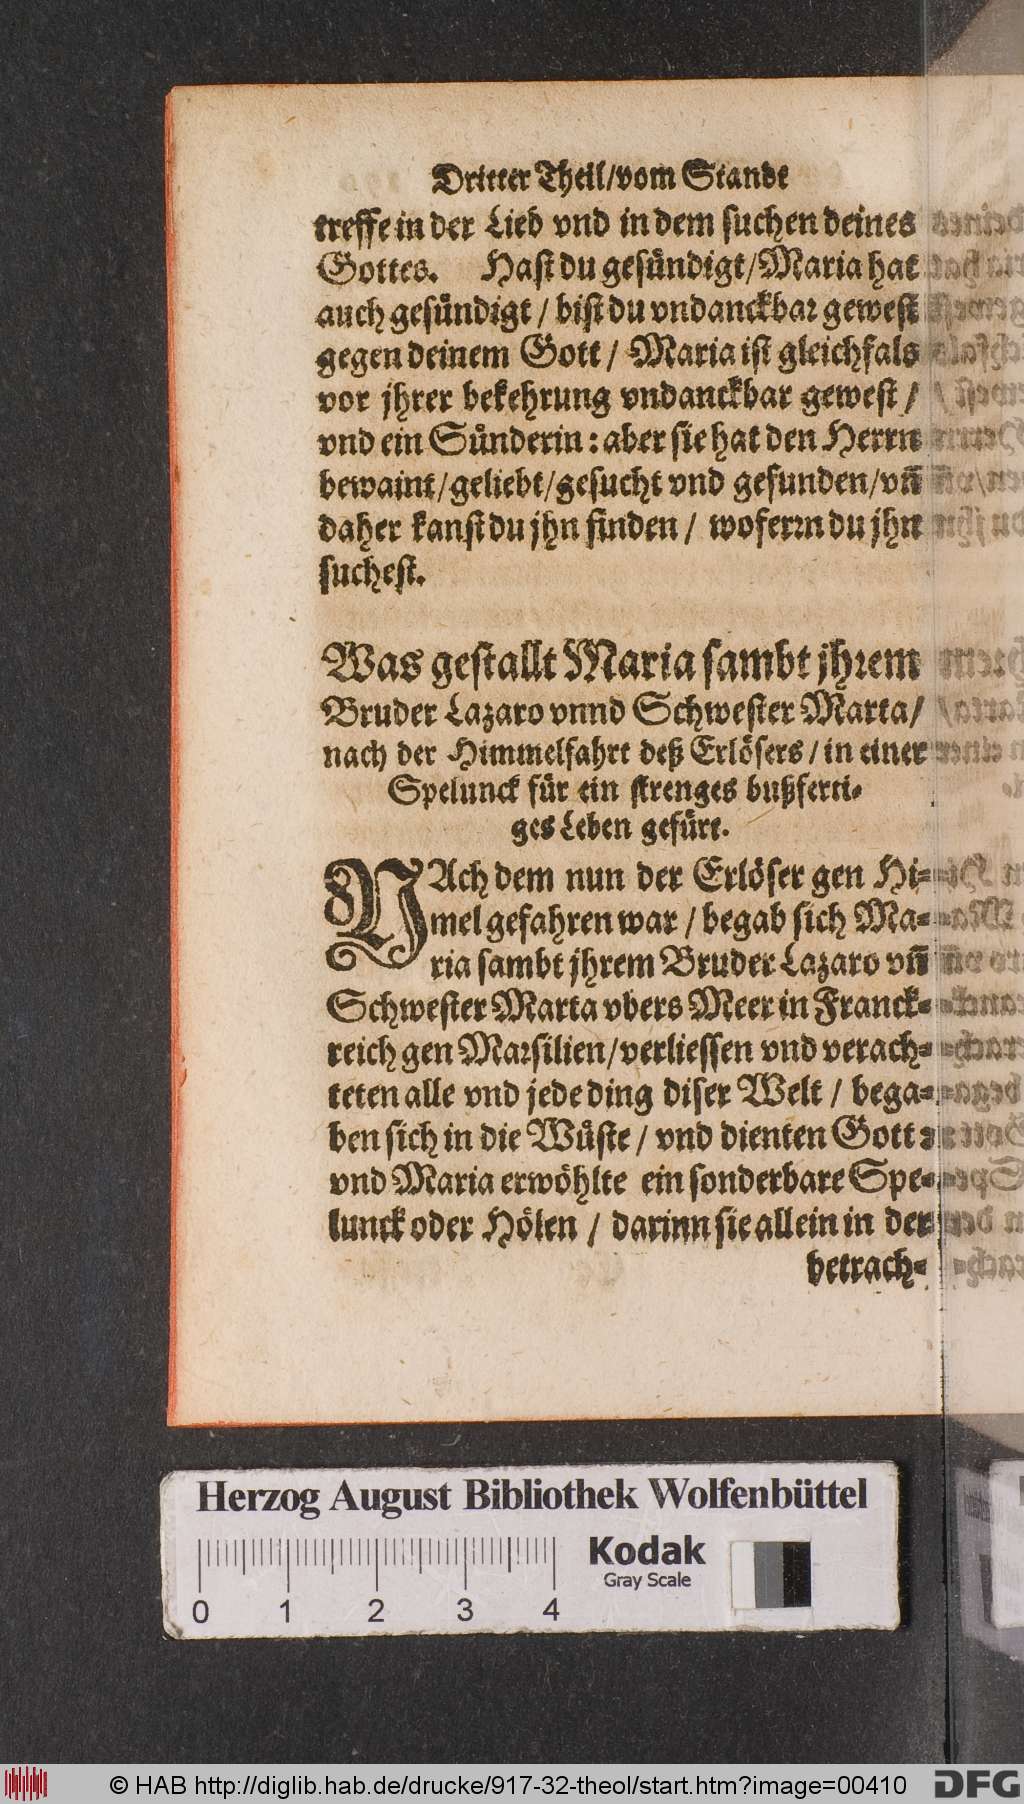 Dritter Theil/vom Stande
treffe in der Lieb vnd in dem suchen deines
Gottes. Hast du gesündigt/Maria hat
auch gesündigt / bist du vndanckbar gewest
gegen deinem Gott / Maria ist gleichfals
vor jhrer bekehrung vndanckbar gewest /
vnd ein Sünderin: aber sie hat den Herrn
bewaint/geliebt/gesucht vnd gefunden/vn̄
daher kanst du jhn finden / woferrn du jhn
suchest.
Was gestallt Maria sambt jhrem
Bruder Lazaro vnnd Schwester Marta/
nach der Himmelfahrt deß Erlösers / in einer
Spelunck für ein strenges bußferti-
ges Leben gefürt.
NAch dem nun der Erlöser gen Hi-
mel gefahren war / begab sich Ma-
ria sambt jhrem Bruder Lazaro vn̄
Schwester Marta vbers Meer in Franck-
reich gen Marsilien/verliessen vnd verach-
teten alle vnd jede ding diser Welt / bega-
ben sich in die Wüste / vnd dienten Gott:
vnd Maria erwöhlte ein sonderbare Spe-
lunck oder Hölen / darinn sie allein in der
betrach-
Herzog August Bibliothek Wolfenbüttel
Kodak
Gray Scale
0 1 2 3 4
© HAB http://diglib.hab.de/drucke/917-32-theol/start.htm?image=00410
DFG